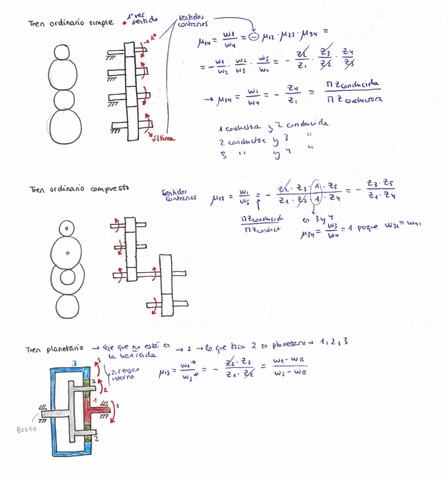 Tren ordinario simple
1º ver sentido
sentidos contrarios
1º
última
μ14 = w1/w4 = (-) μ12 · μ23 · μ34 =
= - w1/w2 · w2/w3 · w3/w4 = - z2/z1 · z3/z2 · z4/z3
→ μ14 = w1/w4 = - z4/z1 = Π z conducida / Π z conductora
1 conductora y 2 conducida
2 conductora y 3 "
3 " y 4 "
Tren ordinario compuesto
Sentidos contrarios
μ15 = w1/w5 = - z2 · z3 · 1 · z5 / z1 · z2 · 1 · z4 = - z3 · z5 / z1 · z4
Π z conducida / Π z conduct
en 3 y 4
μ34 = w3/w4 = 1 porque w3 = w4
Tren planetario → eje que no está en la bancada → 2 → lo que toca 2 es planetario → 1, 2, 3
engrane interno
μ13 = w1*/w3* = - z2 · z3 / z1 · z2 = w1 - wB / w3 - wB
3
3
2
2
1
1
2
Brazo